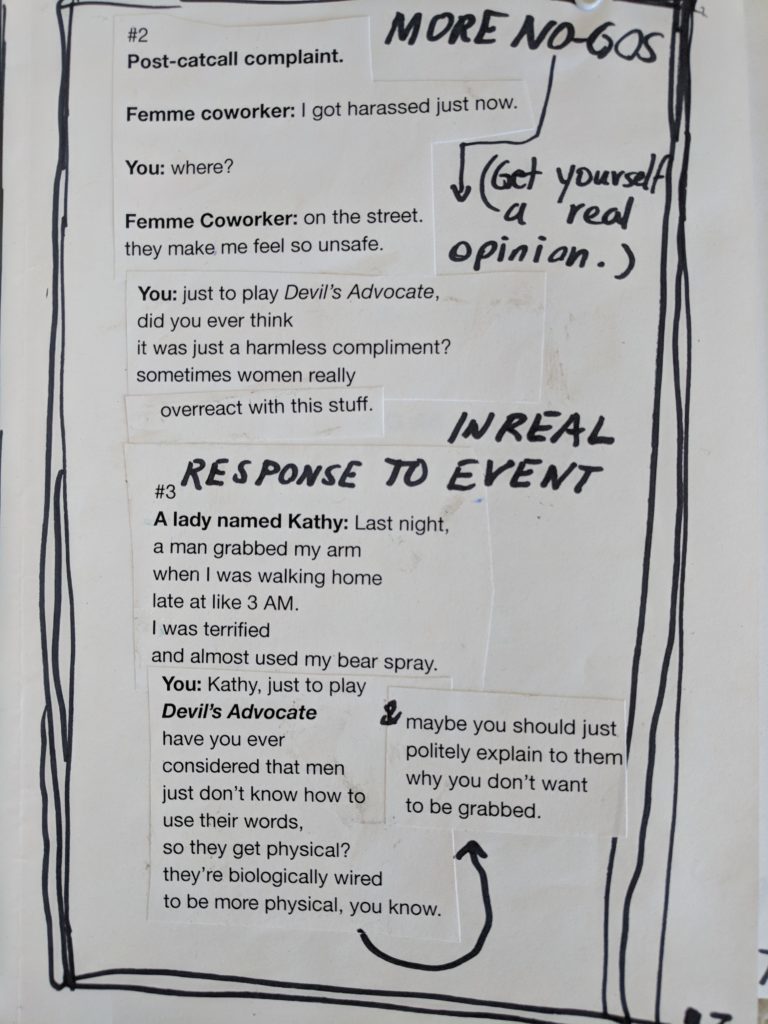 MORE NO-GOS
#2
Post-catcall complaint.
Femme coworker: I got harassed just now.
You: where?
Femme Coworker: on the street.
they make me feel so unsafe.
(Get yourself
a real
opinion.)
You: just to play Devil's Advocate,
did you ever think
it was just a harmless compliment?
sometimes women really
overreact with this stuff.
IN REAL
RESPONSE TO EVENT
#3
A lady named Kathy: Last night,
a man grabbed my arm
when I was walking home
late at like 3 AM.
I was terrified
and almost used my bear spray.
You: Kathy, just to play
Devil's Advocate
have you ever
considered that men
just don't know how to
use their words,
so they get physical?
they're biologically wired
to be more physical, you know.
& maybe you should just
politely explain to them
why you don't want
to be grabbed.